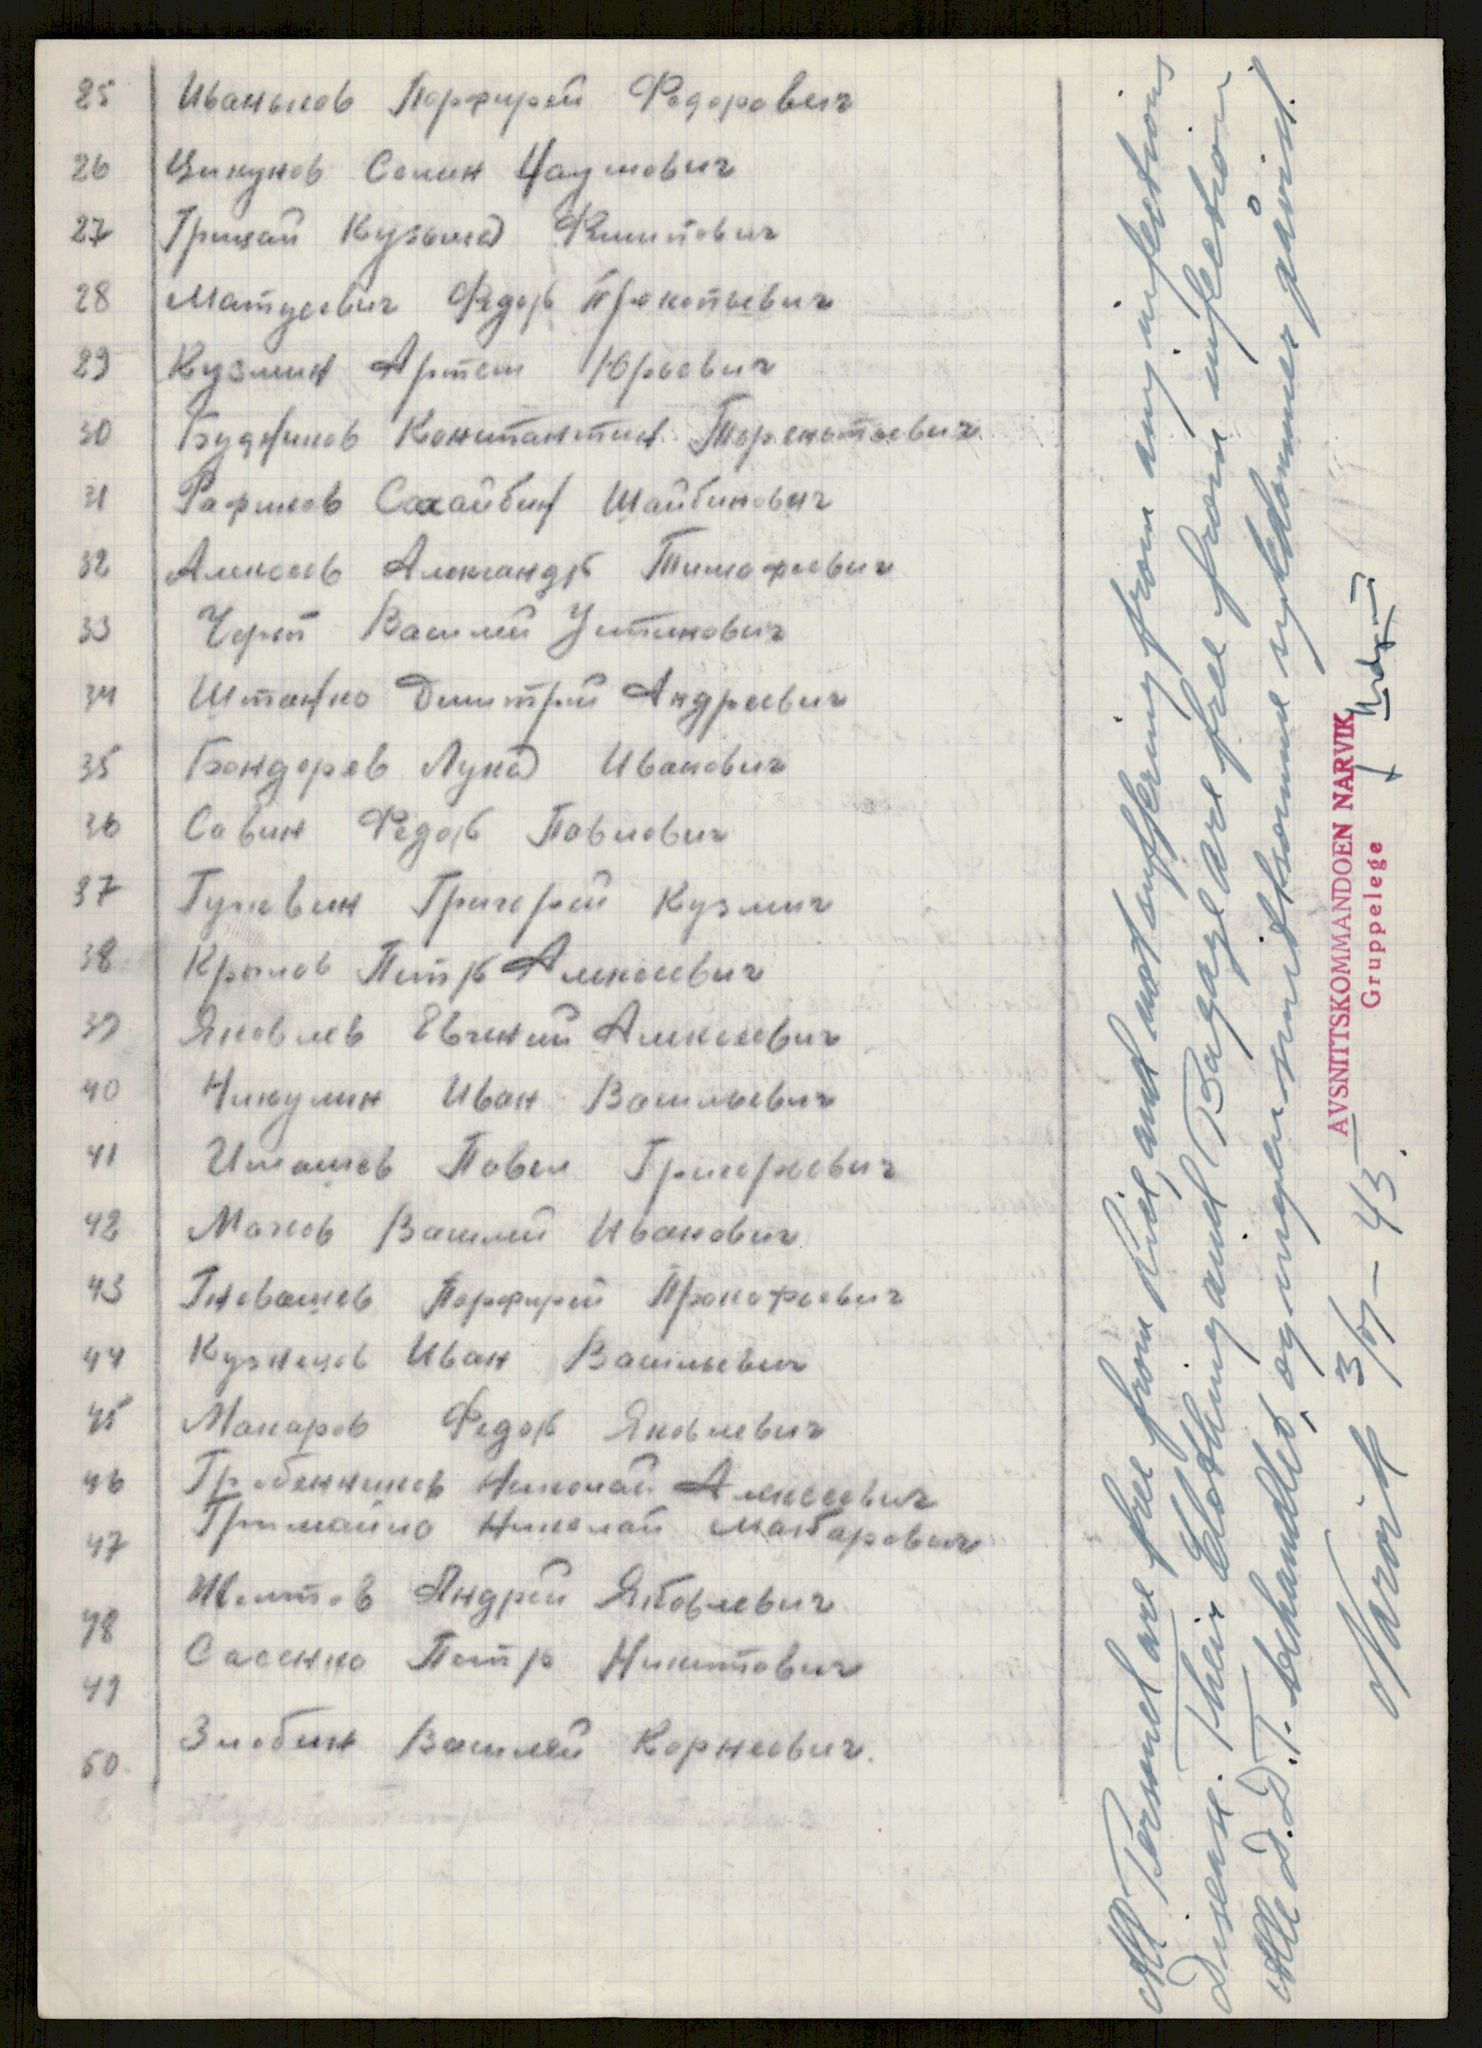 25 Иваньков Порфирей Федорович
26 Цикунов Семин Наумович
27 Грицай Кузьма Филипович
28 Матусевич Федор Прокопьевич
29 Кузмин Артем Юрьевич
30 Константин Терентьевич
31 Рафиков Сахайбин Шайбинович
32 Алексеев Александр Тимофеевич
33 Череп Василий Устинович
34 Штанко Дмитрий Андреевич
35 Бондорев Лука Иванович
36 Савин Федор Павлович
37 Гуревин Григорей Кузмич
38 Крылов Петр Алексеевич
39 Яковлев Евгений Алексеевич
40 Никулин Иван Васильевич
41 Имашев Павел Григорьевич
42 Махов Василий Иванович
43 Гневашев Порфирей Прокофьевич
44 Кузнецов Иван Васильевич
45 Макаров Федор Яковлевич
46 Гребенников Николай Алексеевич
47 Гримайло Николай Макарович
48 Желтов Андрей Яковлевич
49 Сасенко Петр Никитович
50. Злобин Василий Корнеевич.
All Personel are free from lice, and not suffering from any infectious
Disease. Their Clothing and Bagage are free from infection
Alle D.D.T. behandlet, og ingen smitsomme sykdommer påvist.
Narvik 3/7 – 45.
AVSNITTSKOMMANDOEN NARVIK
Gruppelege